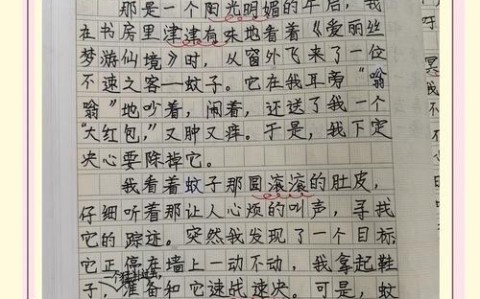 那是一个阳光明媚的午后，我
在书房里津津有味地看着《爱丽丝
梦游仙境》时，从窗外飞来了一位
不速之客—蚊子。它在我耳旁“嗡
嗡”地吵着，闹着，还送了我一个
“大红包，”又肿又痒。于是，我下定
决心要除掉它。
我看着蚊子那圆滚滚的肚皮，
仔细听着那让人心烦的叫声，寻找
它的踪迹。突然我发现了一个目标
它正停在墙上一动不动，我拿起鞋
子，准备和它速战速决。可是，蚊
呀